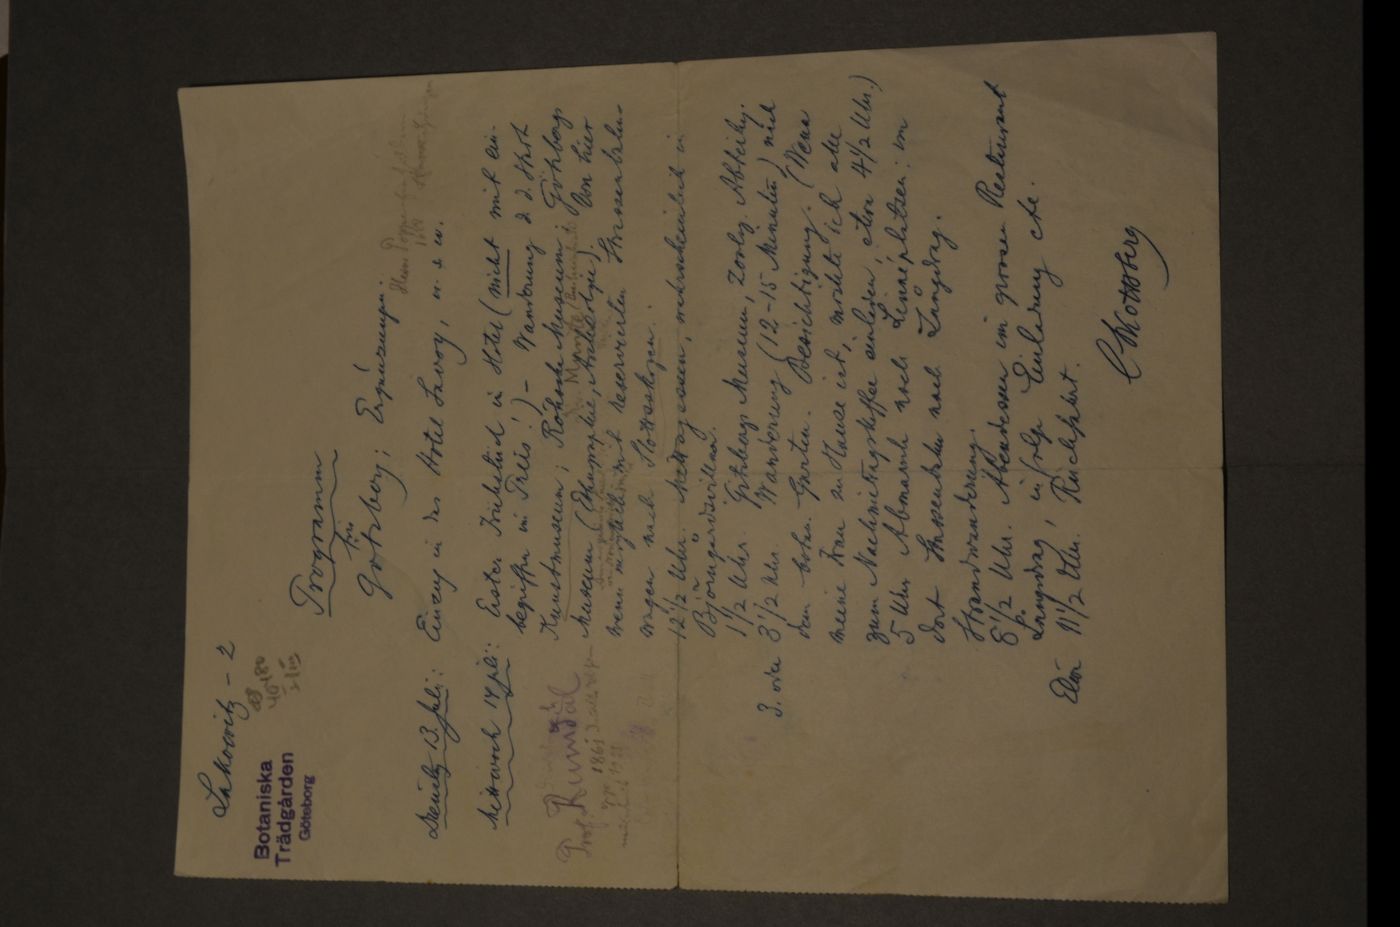 Lakowitz - 2
Botaniska
Trädgården
Göteborg
Programm
für
Gotoberg; Ergänzungen.
Dienstag 13. Juli: Einzug in das Hotel Savoy, u. s. w.
Mittwoch 14 juli: Erster Frühstück in Hotel (nicht mit ein-
begriffen im Preis!) - Wanderung z. d. Stadt
Kunstmuseum; Röhsska Museum; Göteborgs
Museum (Ethnographie, Archäologie). Von hier
wenn möglich mit reservierten Strassenbahn-
wagen nach Slottsskogen.
12 1/2 Uhr. Mittagessen, wahrscheinlich in
Björngårdsvillan.
1 1/2 Uhr. Göteborgs Museum, Zoolog. Abteilg.
3. oder 3 1/2 Uhr. Wanderung (12-15 Minuten) nach
dem botan. Garten. Besichtigung. (Wenn
meine Frau zu Hause ist, möchte ich alle
zum Nachmittagskaffee einladen, etwa 4 1/2 Uhr.)
5 Uhr Abmarsch nach Linnéplatsen; von
dort Strassenbahn nach Långedrag.
Strandwanderung.
8 1/2 Uhr. Abendessen im grossen Restaurant
Långedrag, infolge Einladung etc.
11 1/2 Uhr. Rückfahrt.
C Skottsberg
Prof.